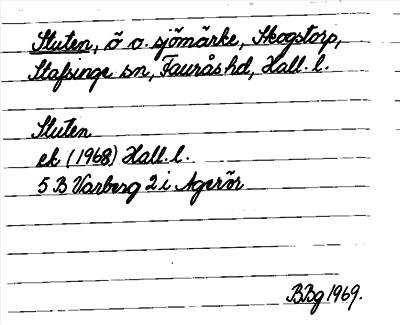 Sluten, ö o. sjömärke, Skogstorp,
Stafsinge sn, Faurås hd, Hall. l.
Sluten
ek (1968) Hall. l.
5 B Varberg 2 i Agerör
BBg 1969.